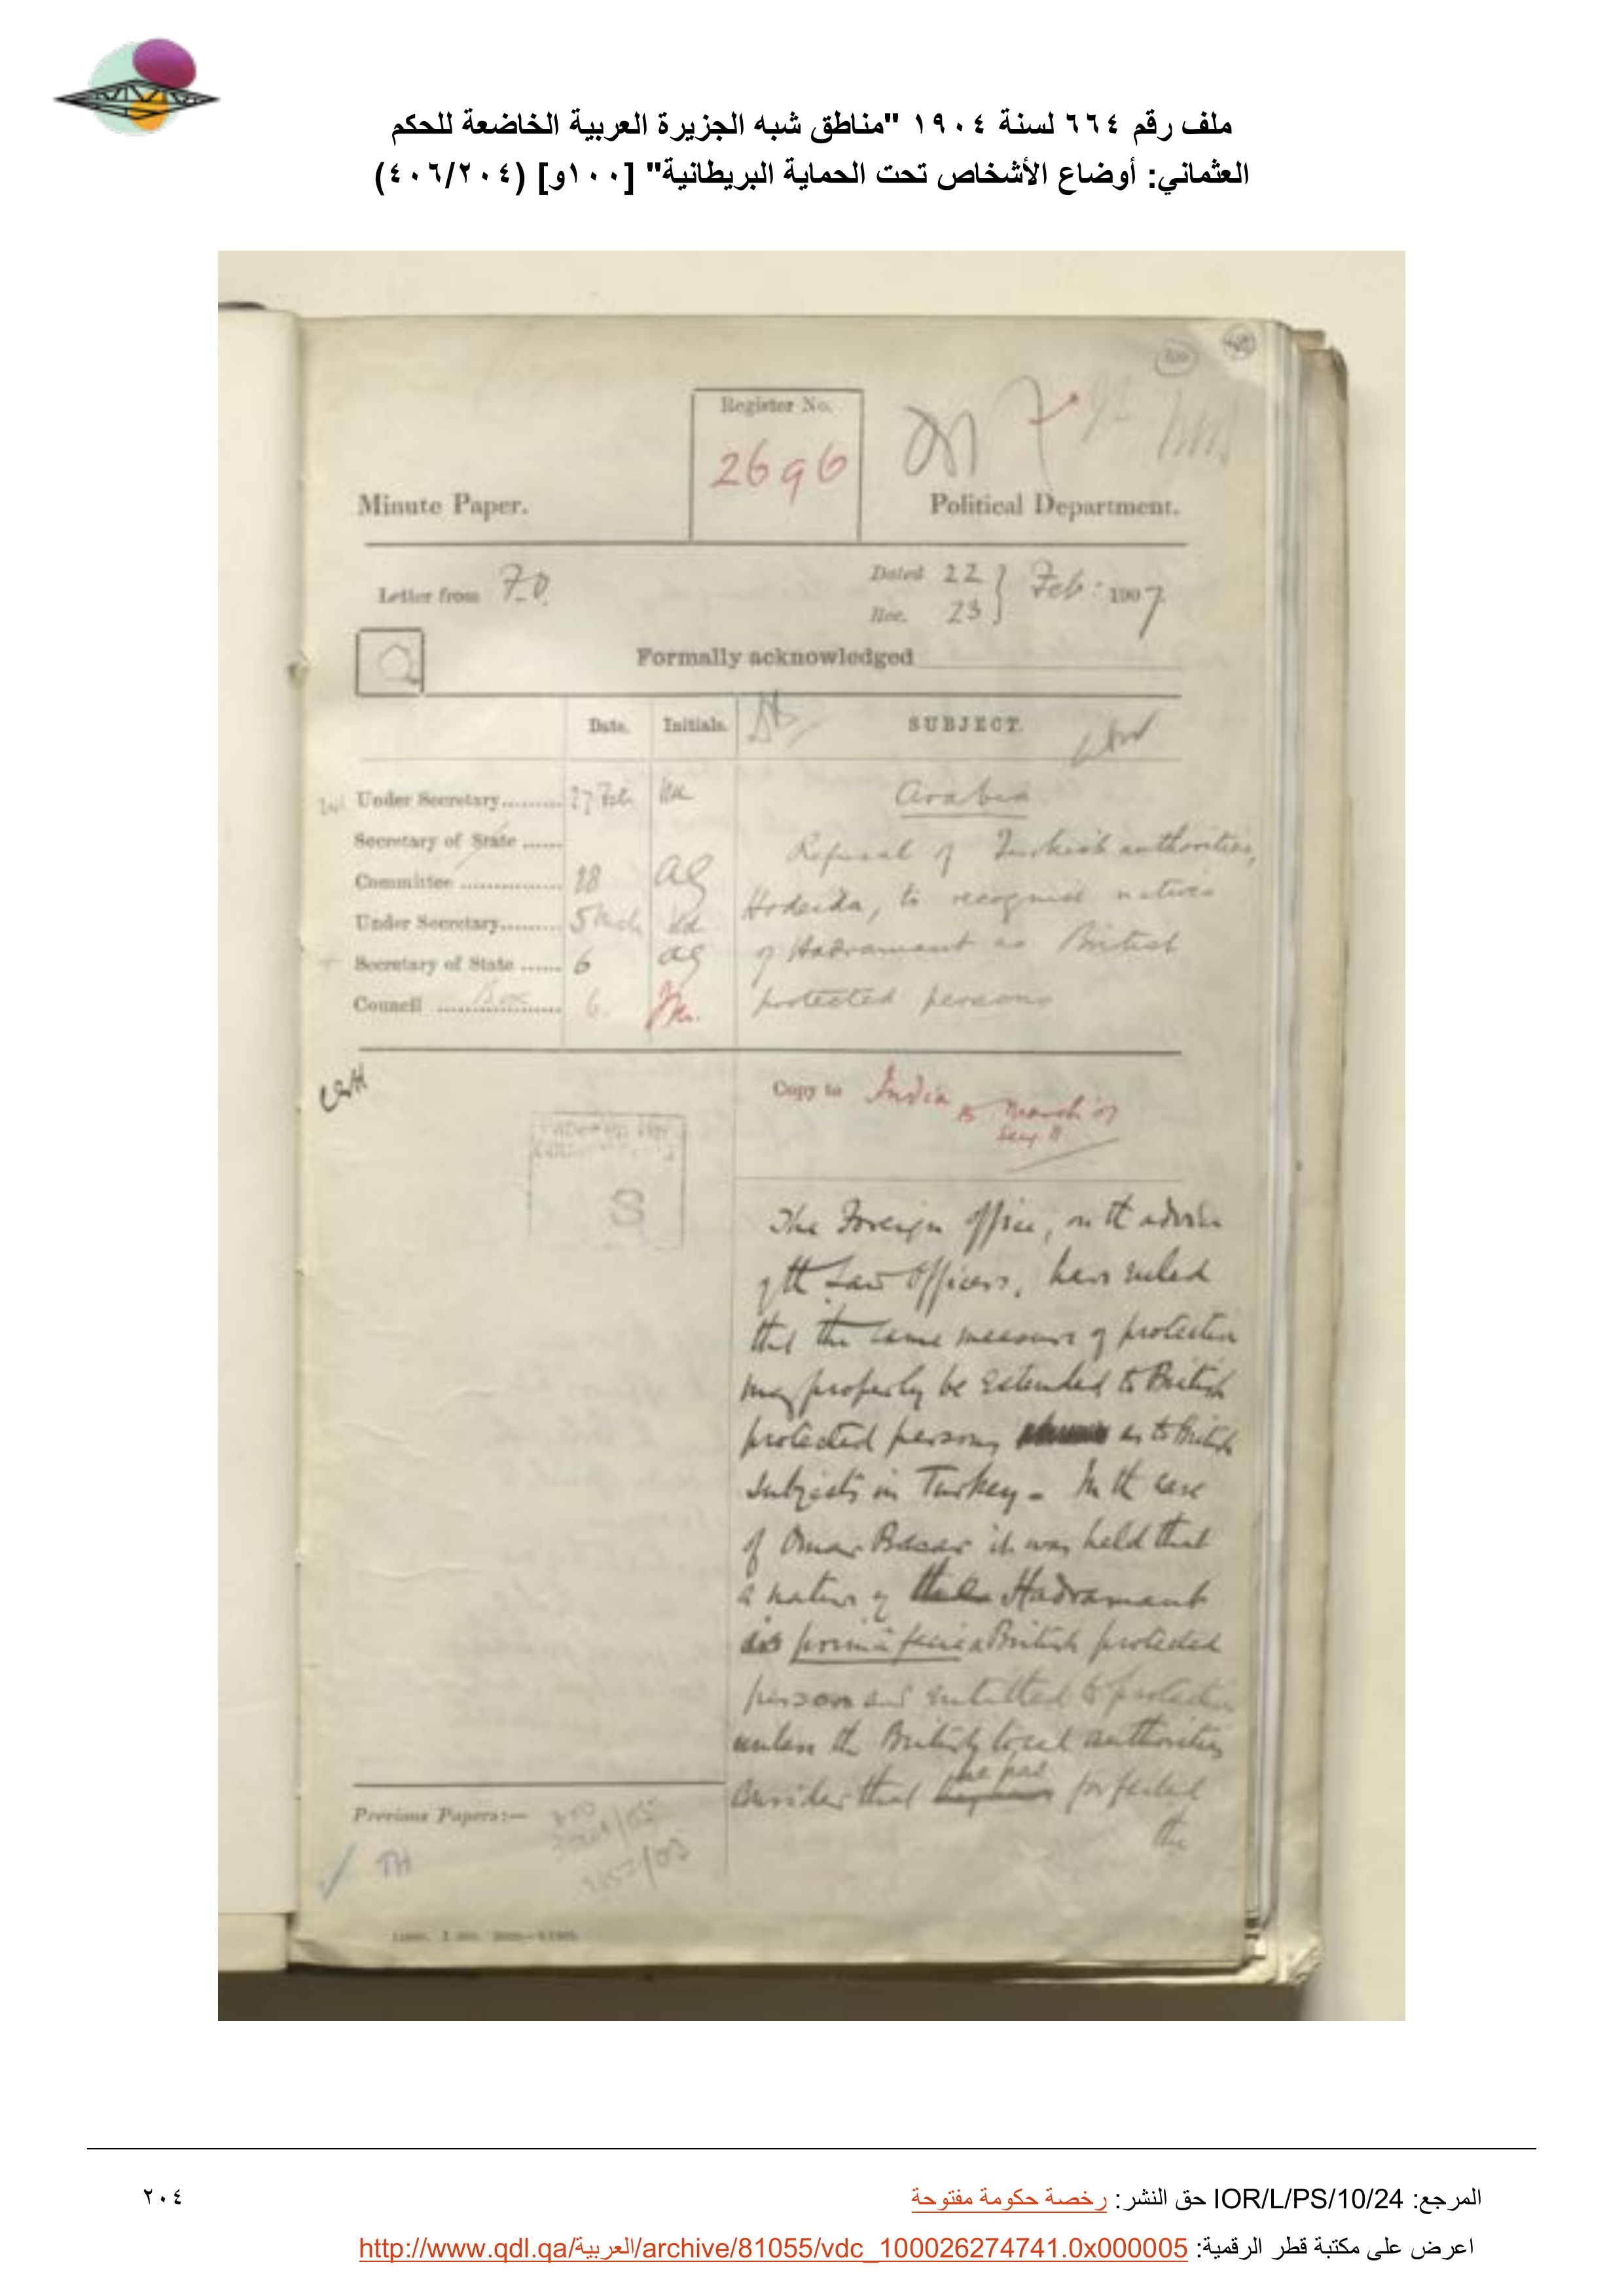 ملف رقم ٦٦٤ لسنة ١٩٠٤ "مناطق شبه الجزيرة العربية الخاضعة للحكم
العثماني: أوضاع الأشخاص تحت الحماية البريطانية" [١٠٠و] (٤٠٦/٢٠٤)
Register No.
2696
Minute Paper.
Political Department.
Letter from F.O.
Dated 22 } Feb. 1907
Rec. 23
Formally acknowledged
Date. Initials. SUBJECT.
Under Secretary 27 Feb
Secretary of State
Committee 28 AG
Under Secretary 5 Mch
Secretary of State 6 AG
Council 6
Arabia
Refusal of Turkish authorities,
Hodeida, to recognise natives
of Hadramaut as British
protected persons
Copy to India 15 March 07
Secy
The Foreign Office, on the advice
of the Law Officers, have ruled
that the same measure of protection
may properly be extended to British
protected persons as to British
subjects in Turkey - In the case
of Omar it was held that
a native of Hadramaut
is prima facie a British protected
person and entitled to protection
unless the British local authorities
consider that he has forfeited
the
Previous Papers:—
المرجع: IOR/L/PS/10/24 حق النشر: رخصة حكومة مفتوحة
٢٠٤
اعرض على مكتبة قطر الرقمية: http://www.qdl.qa/العربية/archive/81055/vdc_100026274741.0x000005